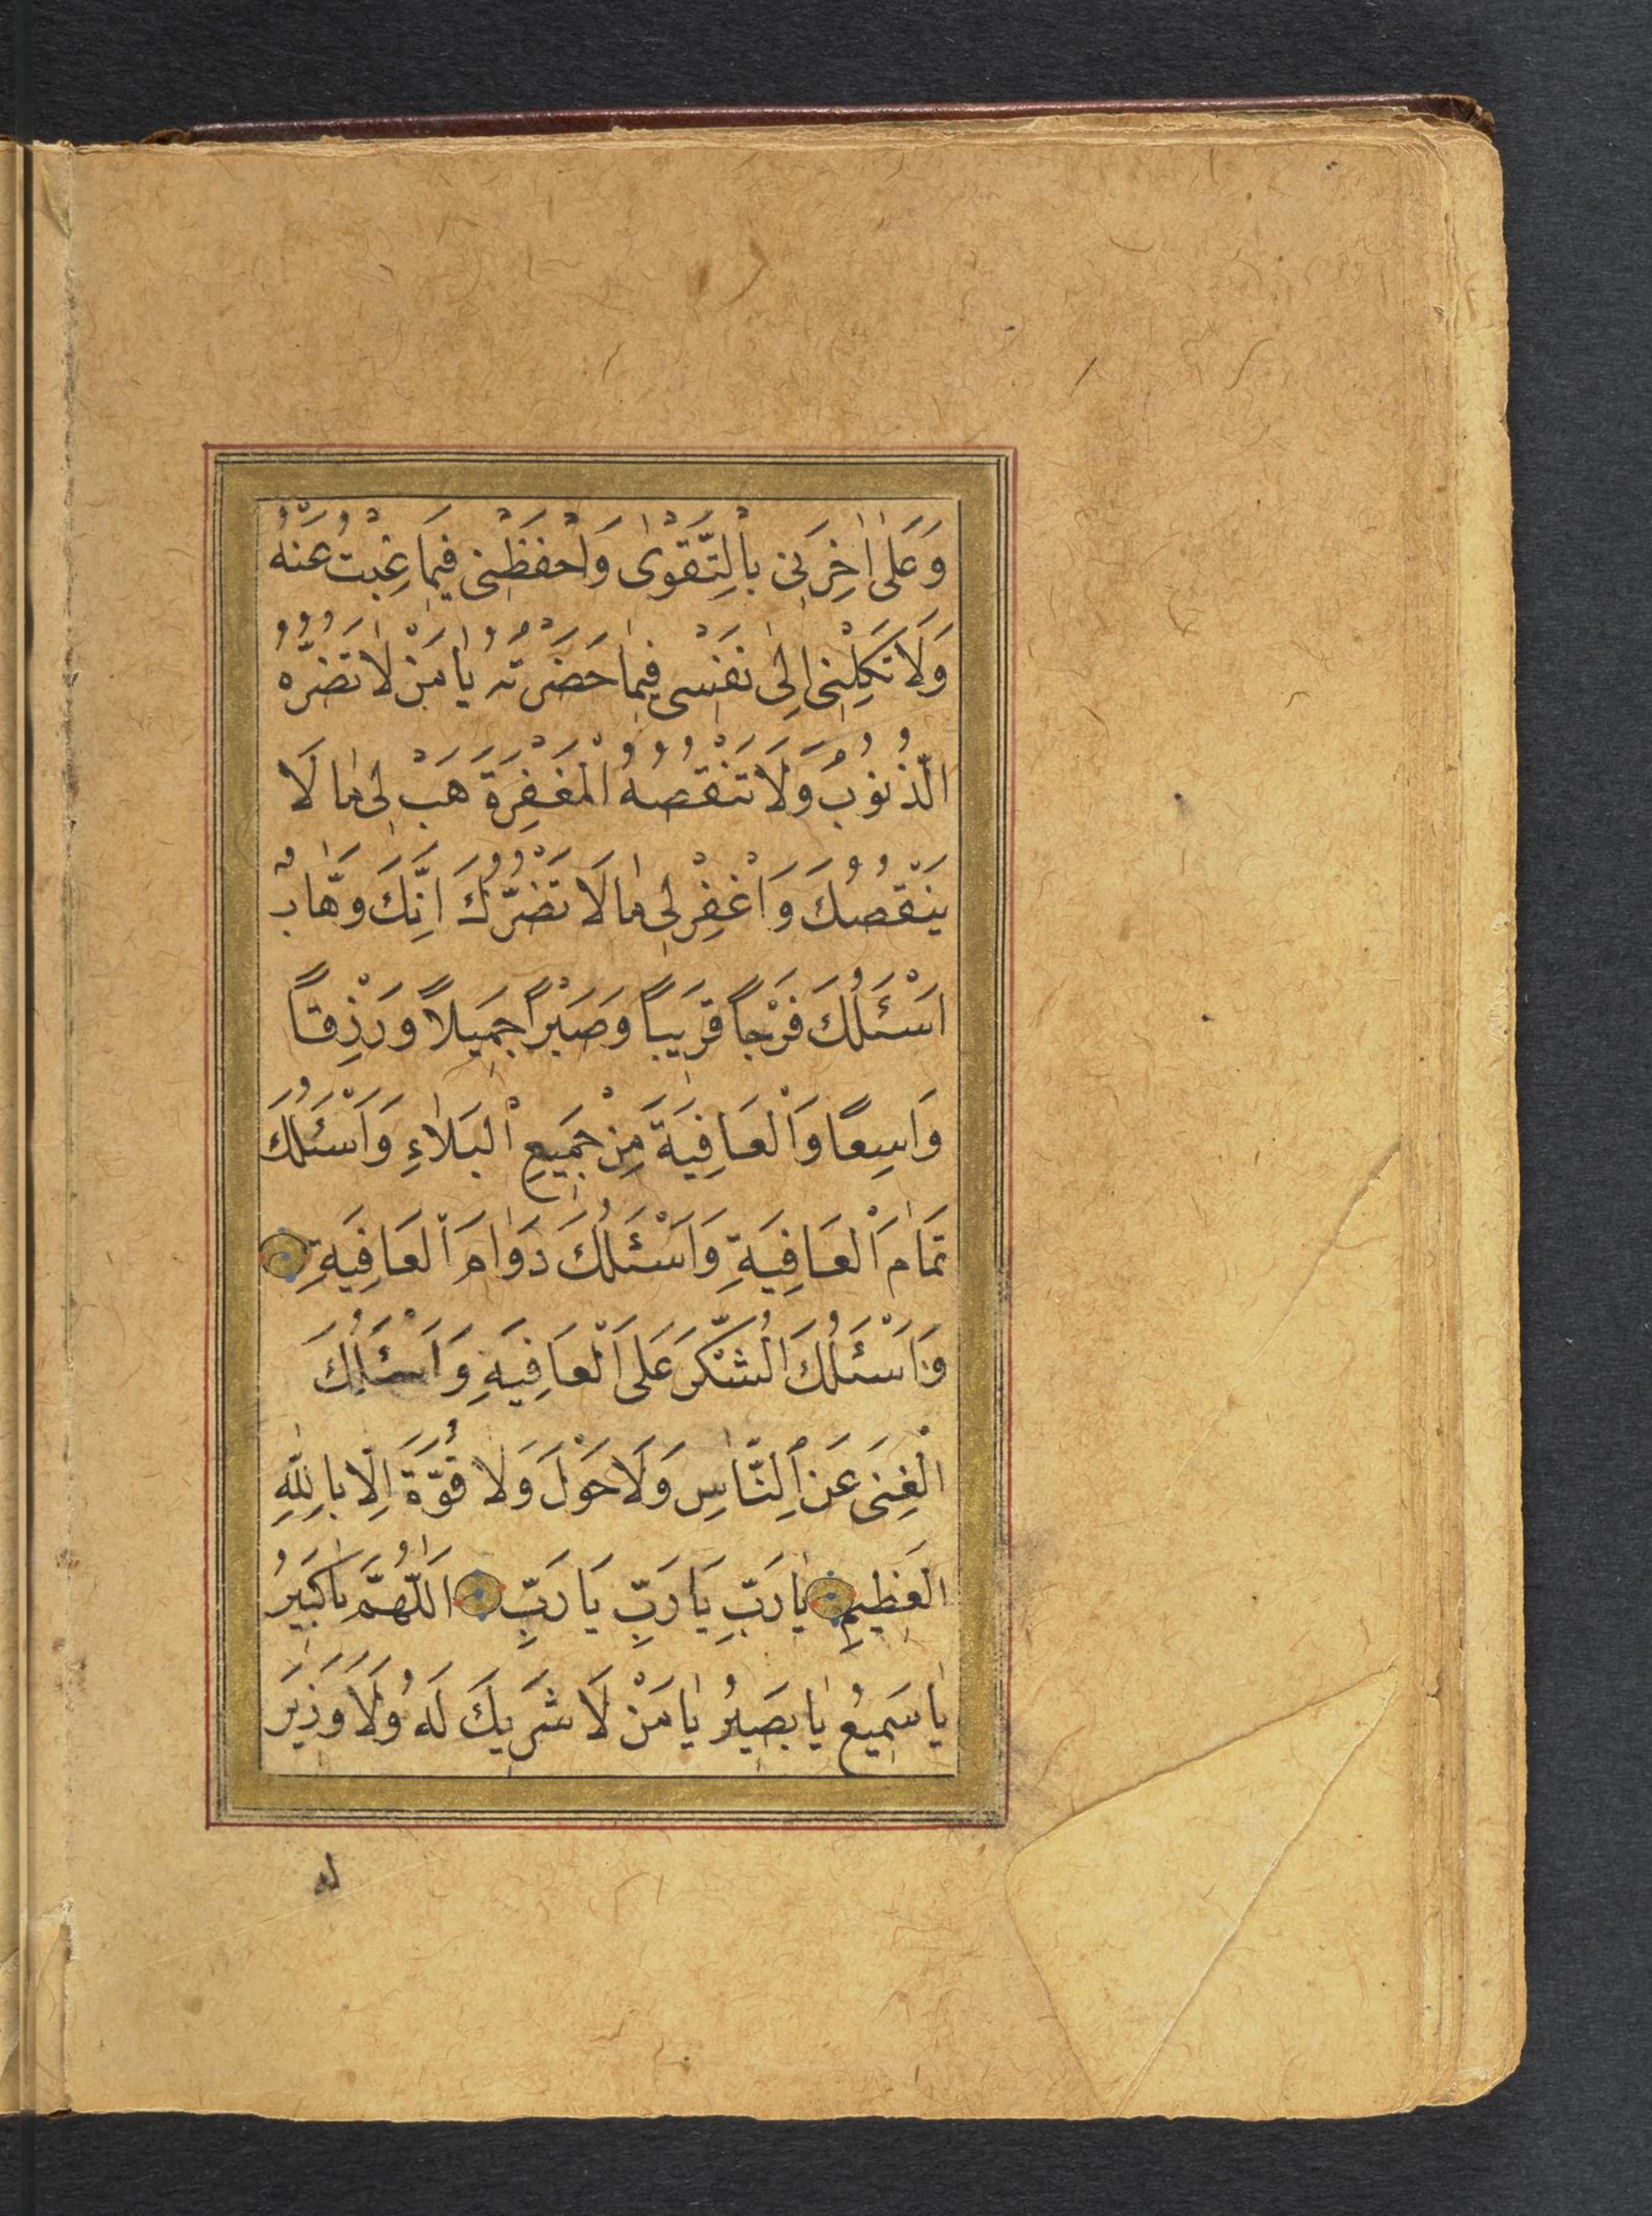 وَعَلٰى اٰخِرَتِى بِالتَّقْوٰى وَاحْفَظْنِى فِيمَا غِبْتُ عَنْهُ
وَلَا تَكِلْنِى اِلٰى نَفْسِى فِيمَا حَضَرْتُهُ يَا مَنْ لَا تَضُرُّهُ
الذُّنُوبُ وَلَا تَنْقُصُهُ الْمَغْفِرَةَ هَبْ لِى مَا لَا
يَنْقُصُكَ وَاغْفِرْ لِى مَا لَا تَضُرُّكَ اِنَّكَ وَهَّابٌ
اَسْئَلُكَ فَرْجاً قَرِيباً وَصَبْراً جَمِيلاً وَرِزْقاً
وَاسِعًا وَالْعَافِيَةَ مِنْ جَمِيعِ الْبَلَاءِ وَاَسْئَلُكَ
تَمَامَ الْعَافِيَةِ وَاَسْئَلُكَ دَوَامَ الْعَافِيَةِ
وَاَسْئَلُكَ الشُّكْرَ عَلَى الْعَافِيَةِ وَاَسْئَلُكَ
الْغِنٰى عَنِ النَّاسِ وَلَا حَوْلَ وَلَا قُوَّةَ اِلَّا بِاللّٰهِ
الْعَظِيمِ يَا رَبِّ يَا رَبِّ يَا رَبِّ اَللّٰهُمَّ يَا كَبِيرُ
يَا سَمِيعُ يَا بَصِيرُ يَا مَنْ لَا شَرِيكَ لَهُ وَلَا وَزِيرَ
له